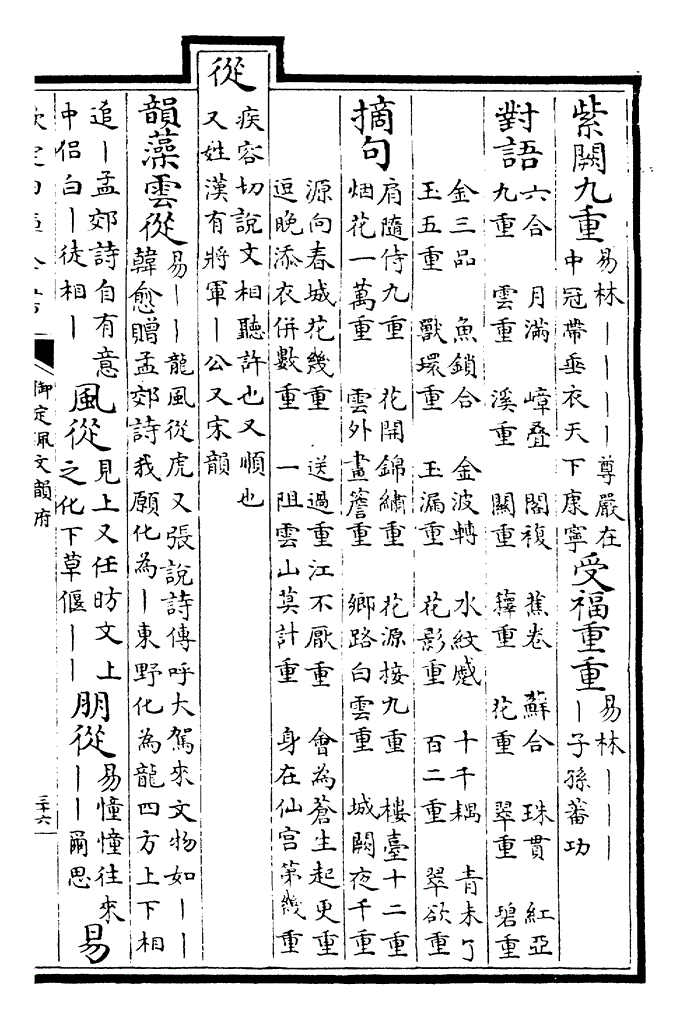 紫闕九重
易林――――尊嚴在
中冠帶垂衣天下康寧
受福重重
易林―――
―子孫蕃功
對語
六合 月滿 嶂疊 閣複 蕉卷 蘇合 珠貫 紅亞
九重 雲重 溪重 關重 籜重 花重 翠重 碧重
金三品 魚鎖合 金波轉 水紋蹙 十千耦 青未了
玉五重 獸環重 玉漏重 花影重 百二重 翠欲重
摘句
肩隨侍九重 花開錦繡重 花源接九重 樓臺十二重
烟花一萬重 雲外畫簷重 鄉路白雲重 城闕夜千重
源向春城花幾重 送過重江不厭重 會為蒼生起更重
逗晚添衣併數重 一阻雲山莫計重 身在仙宫第幾重
從
疾容切說文相聽許也又順也
又姓漢有將軍―公又宋韻
韻藻雲從
易――龍風從虎又張說詩傳呼大駕來文物如――
韓愈贈孟郊詩我願化為―東野化為龍四方上下相
追―孟郊詩自有意
中侣白―徒相―
風從
見上又任昉文上
之化下草偃――
朋從
易憧憧往來
――爾思
易
御定佩文韻府
三十六